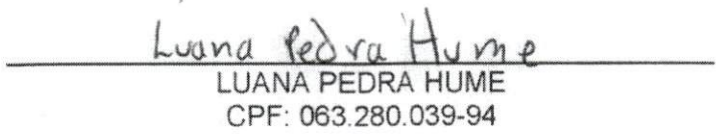 Luana Pedra Hume
LUANA PEDRA HUME
CPF: 063.280.039-94